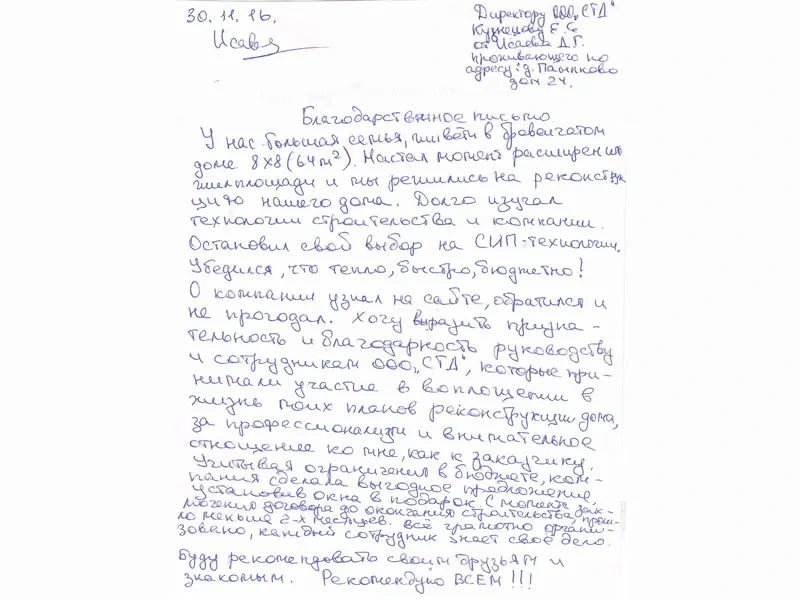 30.11.16.
Исаев
Директору ООО „СТД"
Кузнецову Е.С.
от Исаева Д.Г.
проживающего по
адресу: д. Паыпково
дом 24.
Благодарственное письмо.
У нас большая семья, живём в бревенчатом
доме 8х8 (64 м²). Настал момент расширения
жилплощади и мы решились на реконстру
цию нашего дома. Долго изучал
технологии строительства и компании.
Остановил свой выбор на СИП-технологии.
Убедился, что тепло, быстро, бюджетно!
О компании узнал на сайте, обратился и
не прогадал. Хочу выразить призна-
тельность и благодарность руководству
и сотрудникам ООО „СТД", которые при-
нимали участие в воплощении в
жизнь моих планов реконструкции дома,
за профессионализм и внимательное
отношение ко мне, как к заказчику.
Учитывая ограничения в бюджете, ком-
пания сделала выгодное предложение,
установив окна в подарок. С момента зак-
лючения договора до окончания строительства, прош-
ло меньше 2-х месяцев. Всё грамотно органи-
зовано, каждый сотрудник знает своё дело.
Буду рекомендовать своим друзьям и
знакомым. Рекомендую ВСЕМ!!!